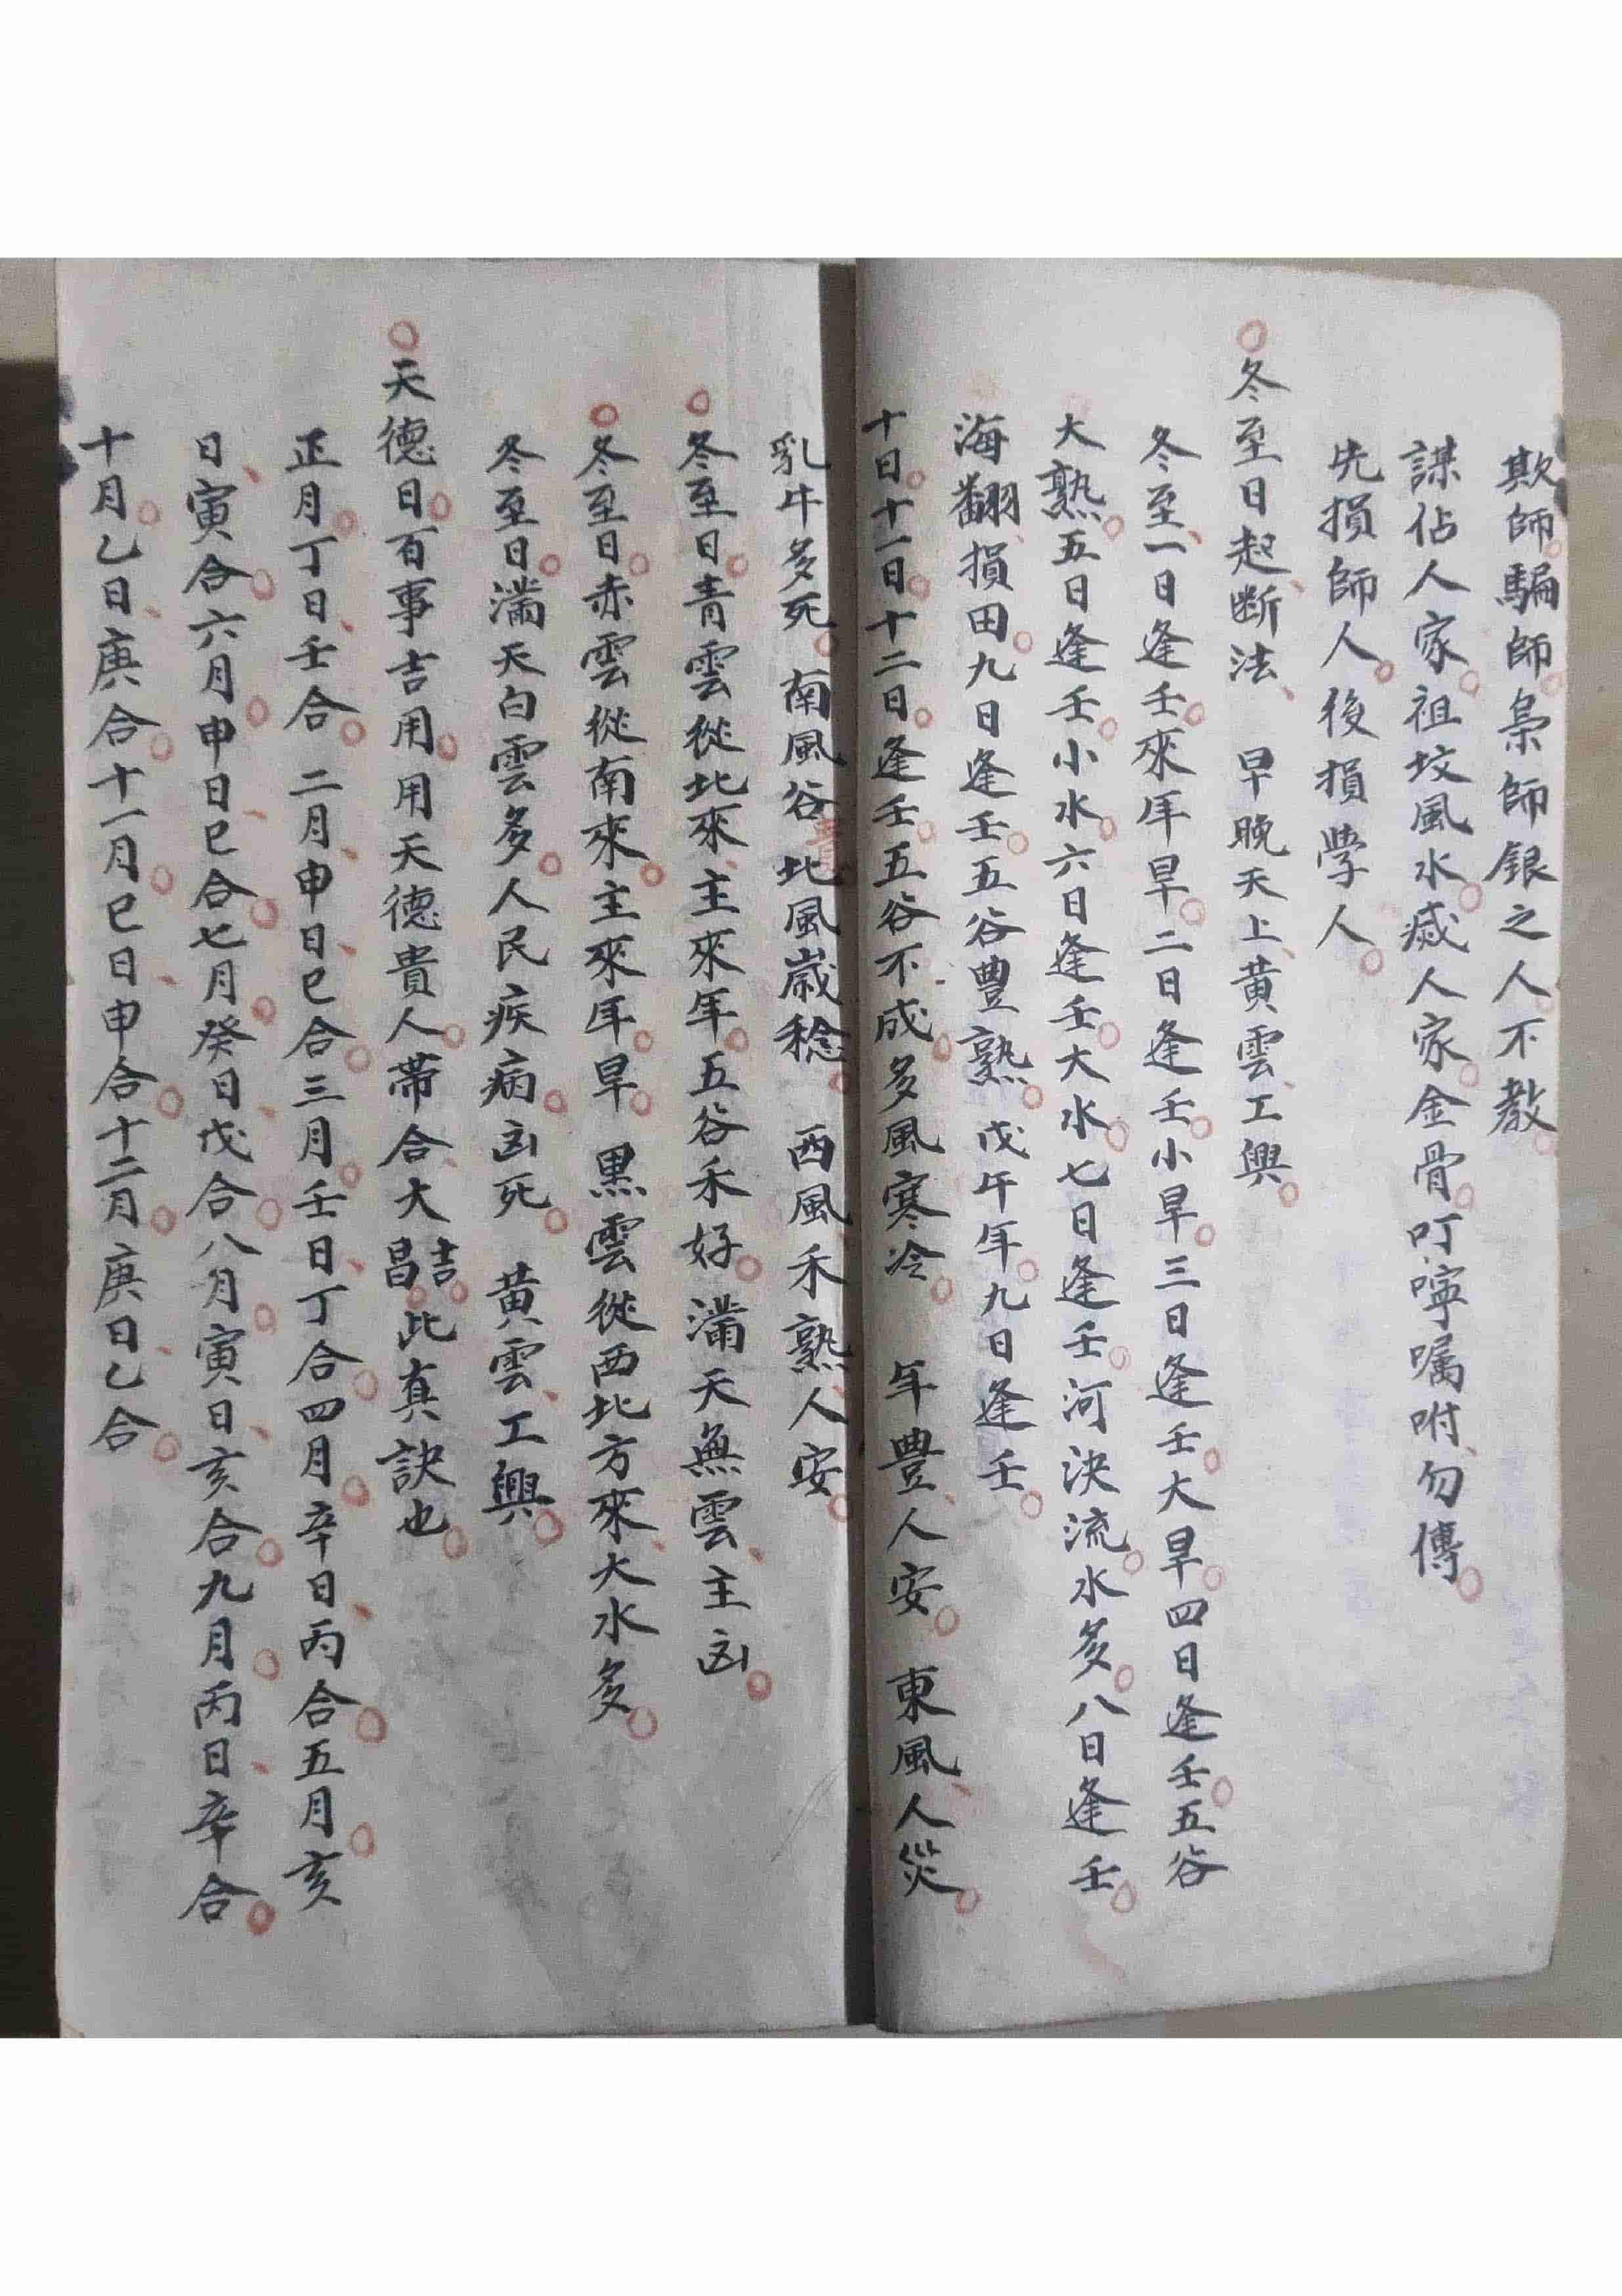 欺師騙師梟師銀之人不教
謀佔人家祖坟風水滅人家金骨叮嚀囑咐勿傳
先損師人後損學人
冬至日起断法 早晚天上黄雲工興
冬至一日逢壬來年旱二日逢壬小旱三日逢壬大旱四日逢壬五谷
大熟五日逢壬小水六日逢壬大水七日逢壬河決流水多八日逢壬
海翻損田九日逢壬五谷豐熟戊午年九日逢壬
十日十一日十二日逢壬五谷不成多風寒冷 年豊人安 東風人災
乳牛多死 南風谷貴北風歲稔 西風禾熟人安
冬至日青雲從北來主來年五谷禾好 滿天無雲主凶
冬至日赤雲從南來主來年旱 黒雲從西北方來大水多
冬至日滿天白雲多人民疾病凶死 黄雲工興
天德日百事吉用用天德貴人帶合大吉昌此真訣也
正月丁日壬合 二月申日巳合三月壬日丁合四月辛日丙合五月亥
日寅合六月申日巳合七月癸日戊合八月寅日亥合九月丙日辛合
十月乙日庚合十一月巳日申合十二月庚日乙合